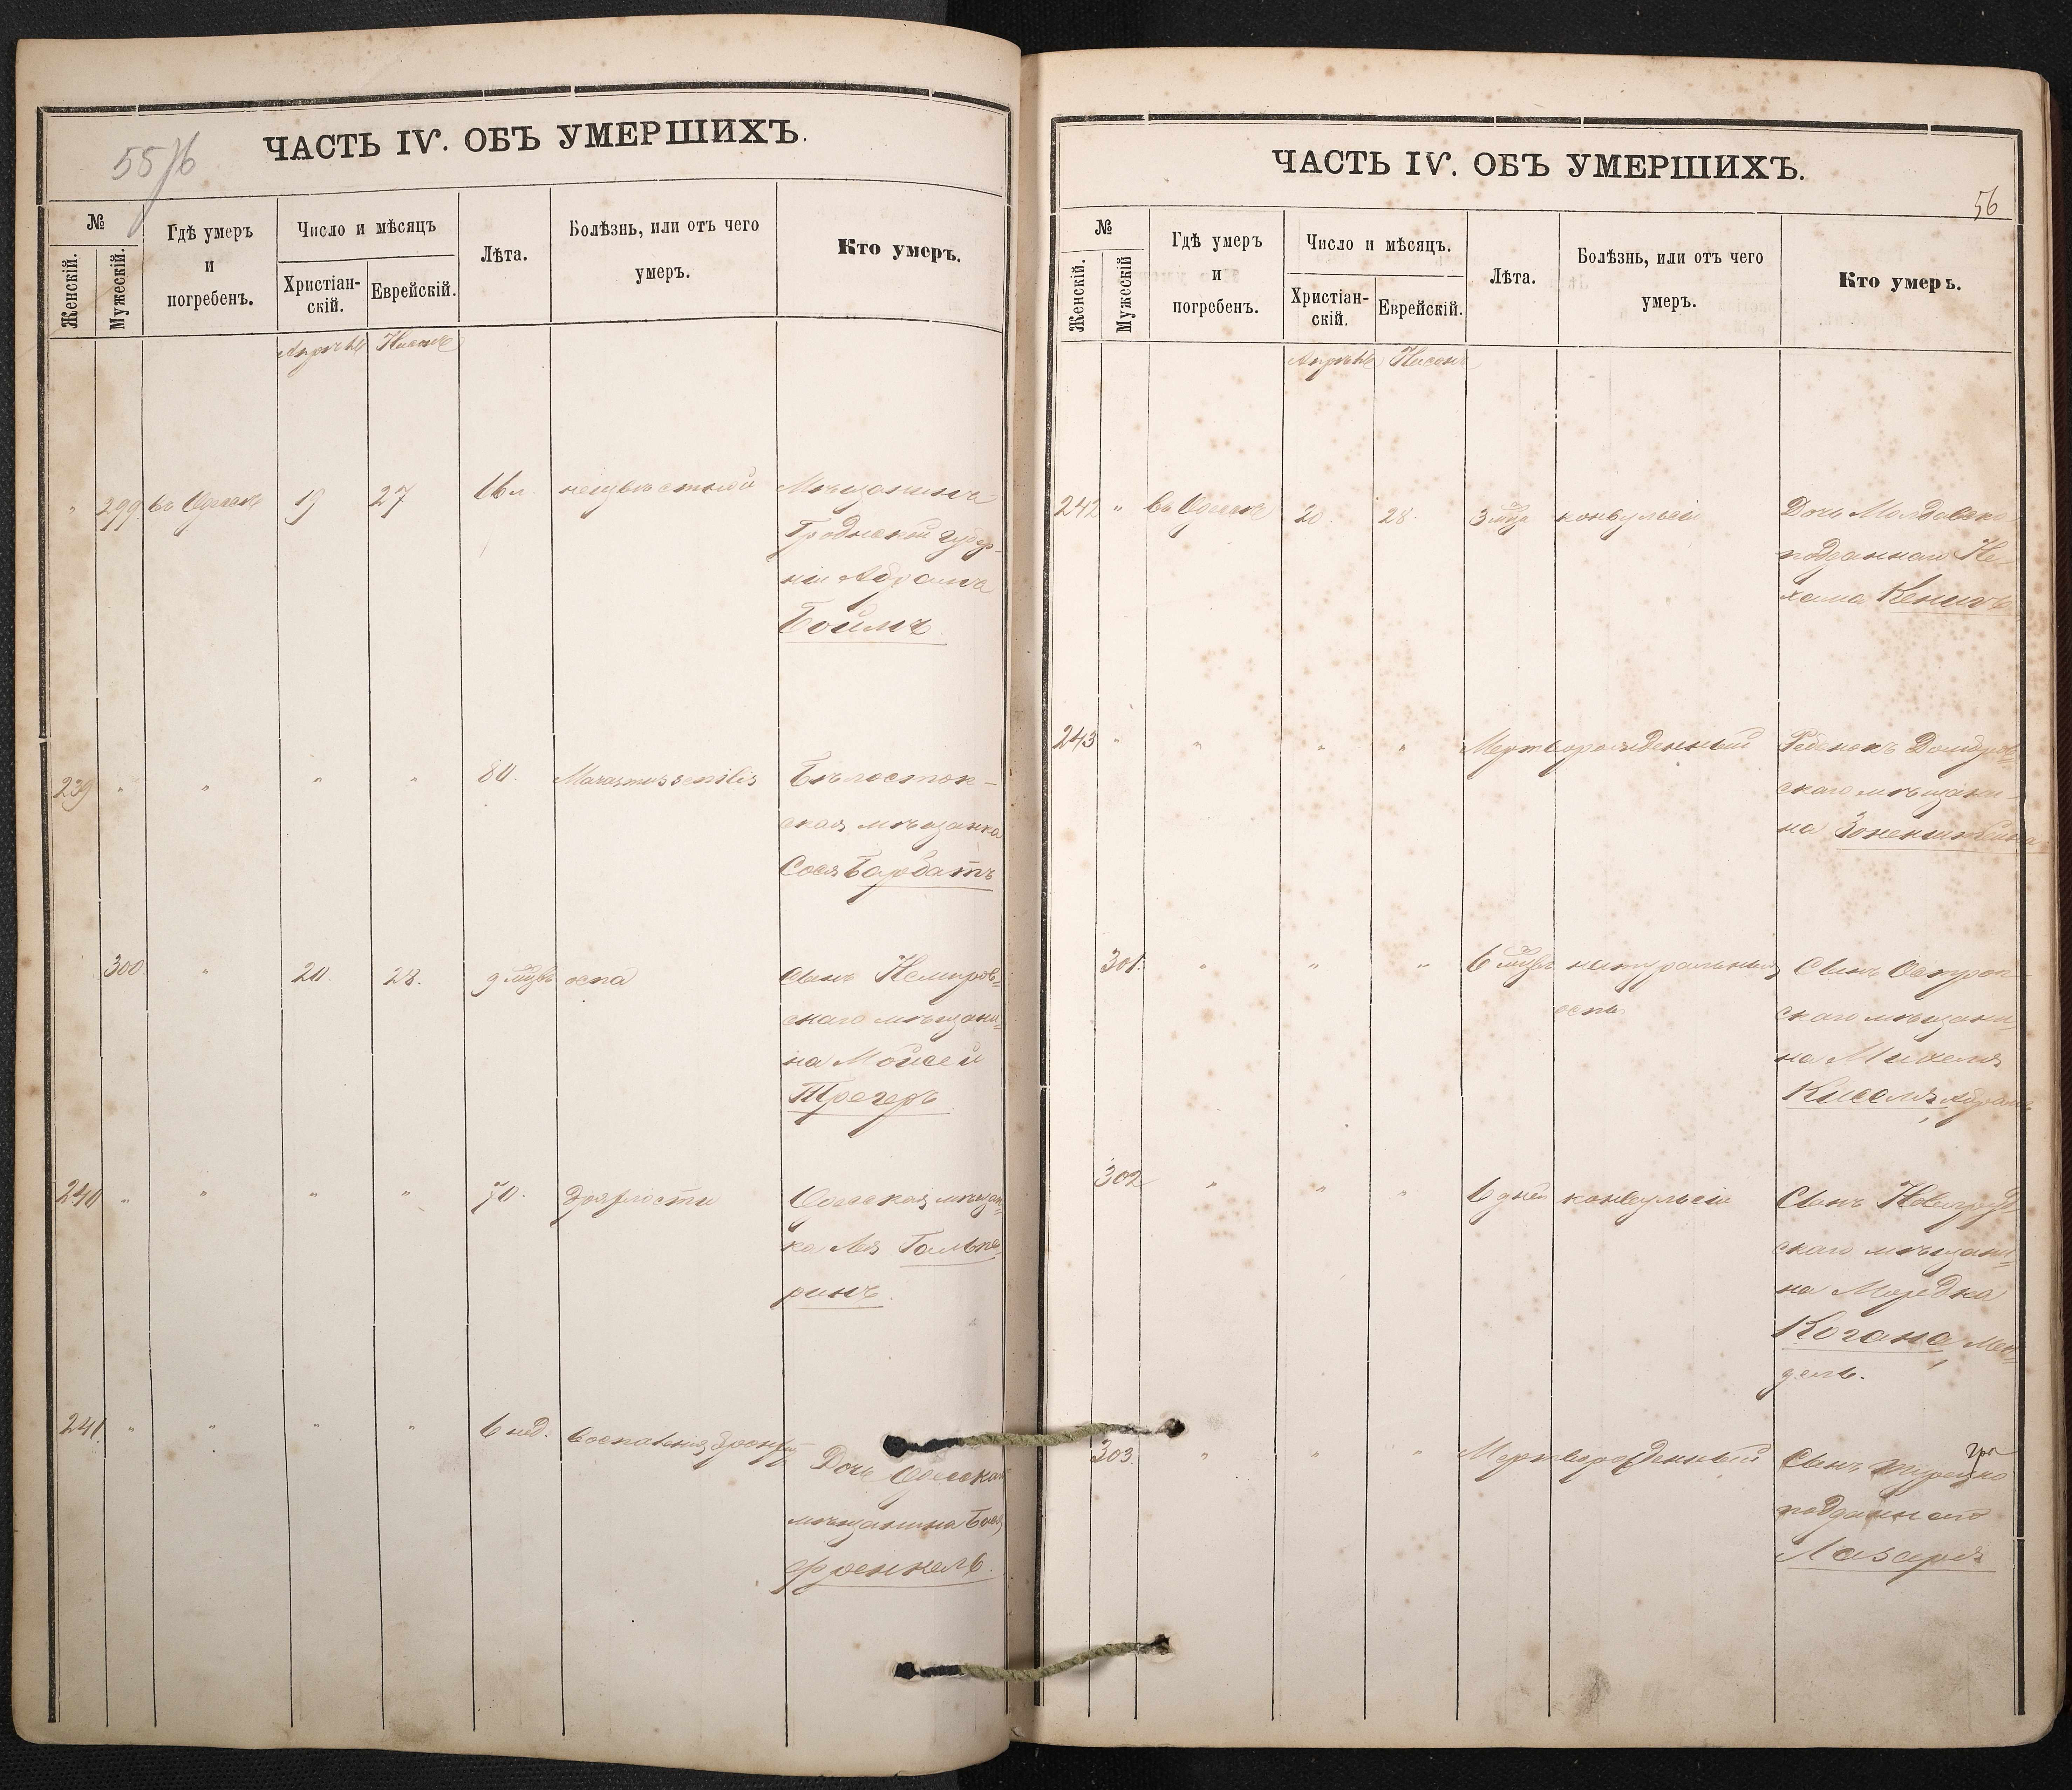 ЧАСТЬ IV. ОБЪ УМЕРШИХЪ.
№
Женскій.
Мужескій.
Гдѣ умеръ
и
погребенъ.
Число и мѣсяцъ
Христіан-
скій.
Еврейскій.
Лѣта.
Болѣзнь, или отъ чего
умеръ.
Кто умеръ.
Апрѣль Нисанъ
" 299 въ Одессѣ 19 27 16 л. неизвѣстной Мѣщанина
Гродненской губер-
ніи Абрама
Боймъ
239 " " " " 80. Marasmus senilis Бѣлосток-
ская мѣщанка
Сося Барбатъ
300 " 20. 28. 9 мцвъ оспа Сынъ Немиров-
скаго мѣщани-
на Мойсей
Трегеръ
240 " " " " 70. дряхлости Одесская мѣщан-
ка Лея Гальпе-
ринъ.
241 " " " " 6 нед. Дочь Одесскаго
мѣщанина
Френкель.
ЧАСТЬ IV. ОБЪ УМЕРШИХЪ.
56
№
Женскій.
Мужескій
Гдѣ умеръ
и
погребенъ.
Число и мѣсяцъ.
Христіан-
скій.
Еврейскій.
Лѣта.
Болѣзнь, или отъ чего
умеръ.
Кто умеръ.
Апрѣль Нисанъ
242 " въ Одессѣ 20. 28. 3 мца конвульсіи Дочь Молдавско
подданная Не-
хама Кенигъ
243 " " " " Мертворожденный Ребенокъ
скаго мѣщани-
на
301. " " " 6 мцвъ натуральный Сынъ
оспъ скаго мѣщани-
на Михеля
Киселя, Абрамъ
302 " " " 6 дней конвульсіи Сынъ Новоград-
скаго мѣщани-
на Мордка
Когана, Мен-
дель.
303. " " " Мертворожденный Сынъ
подданнаго
Лазаря